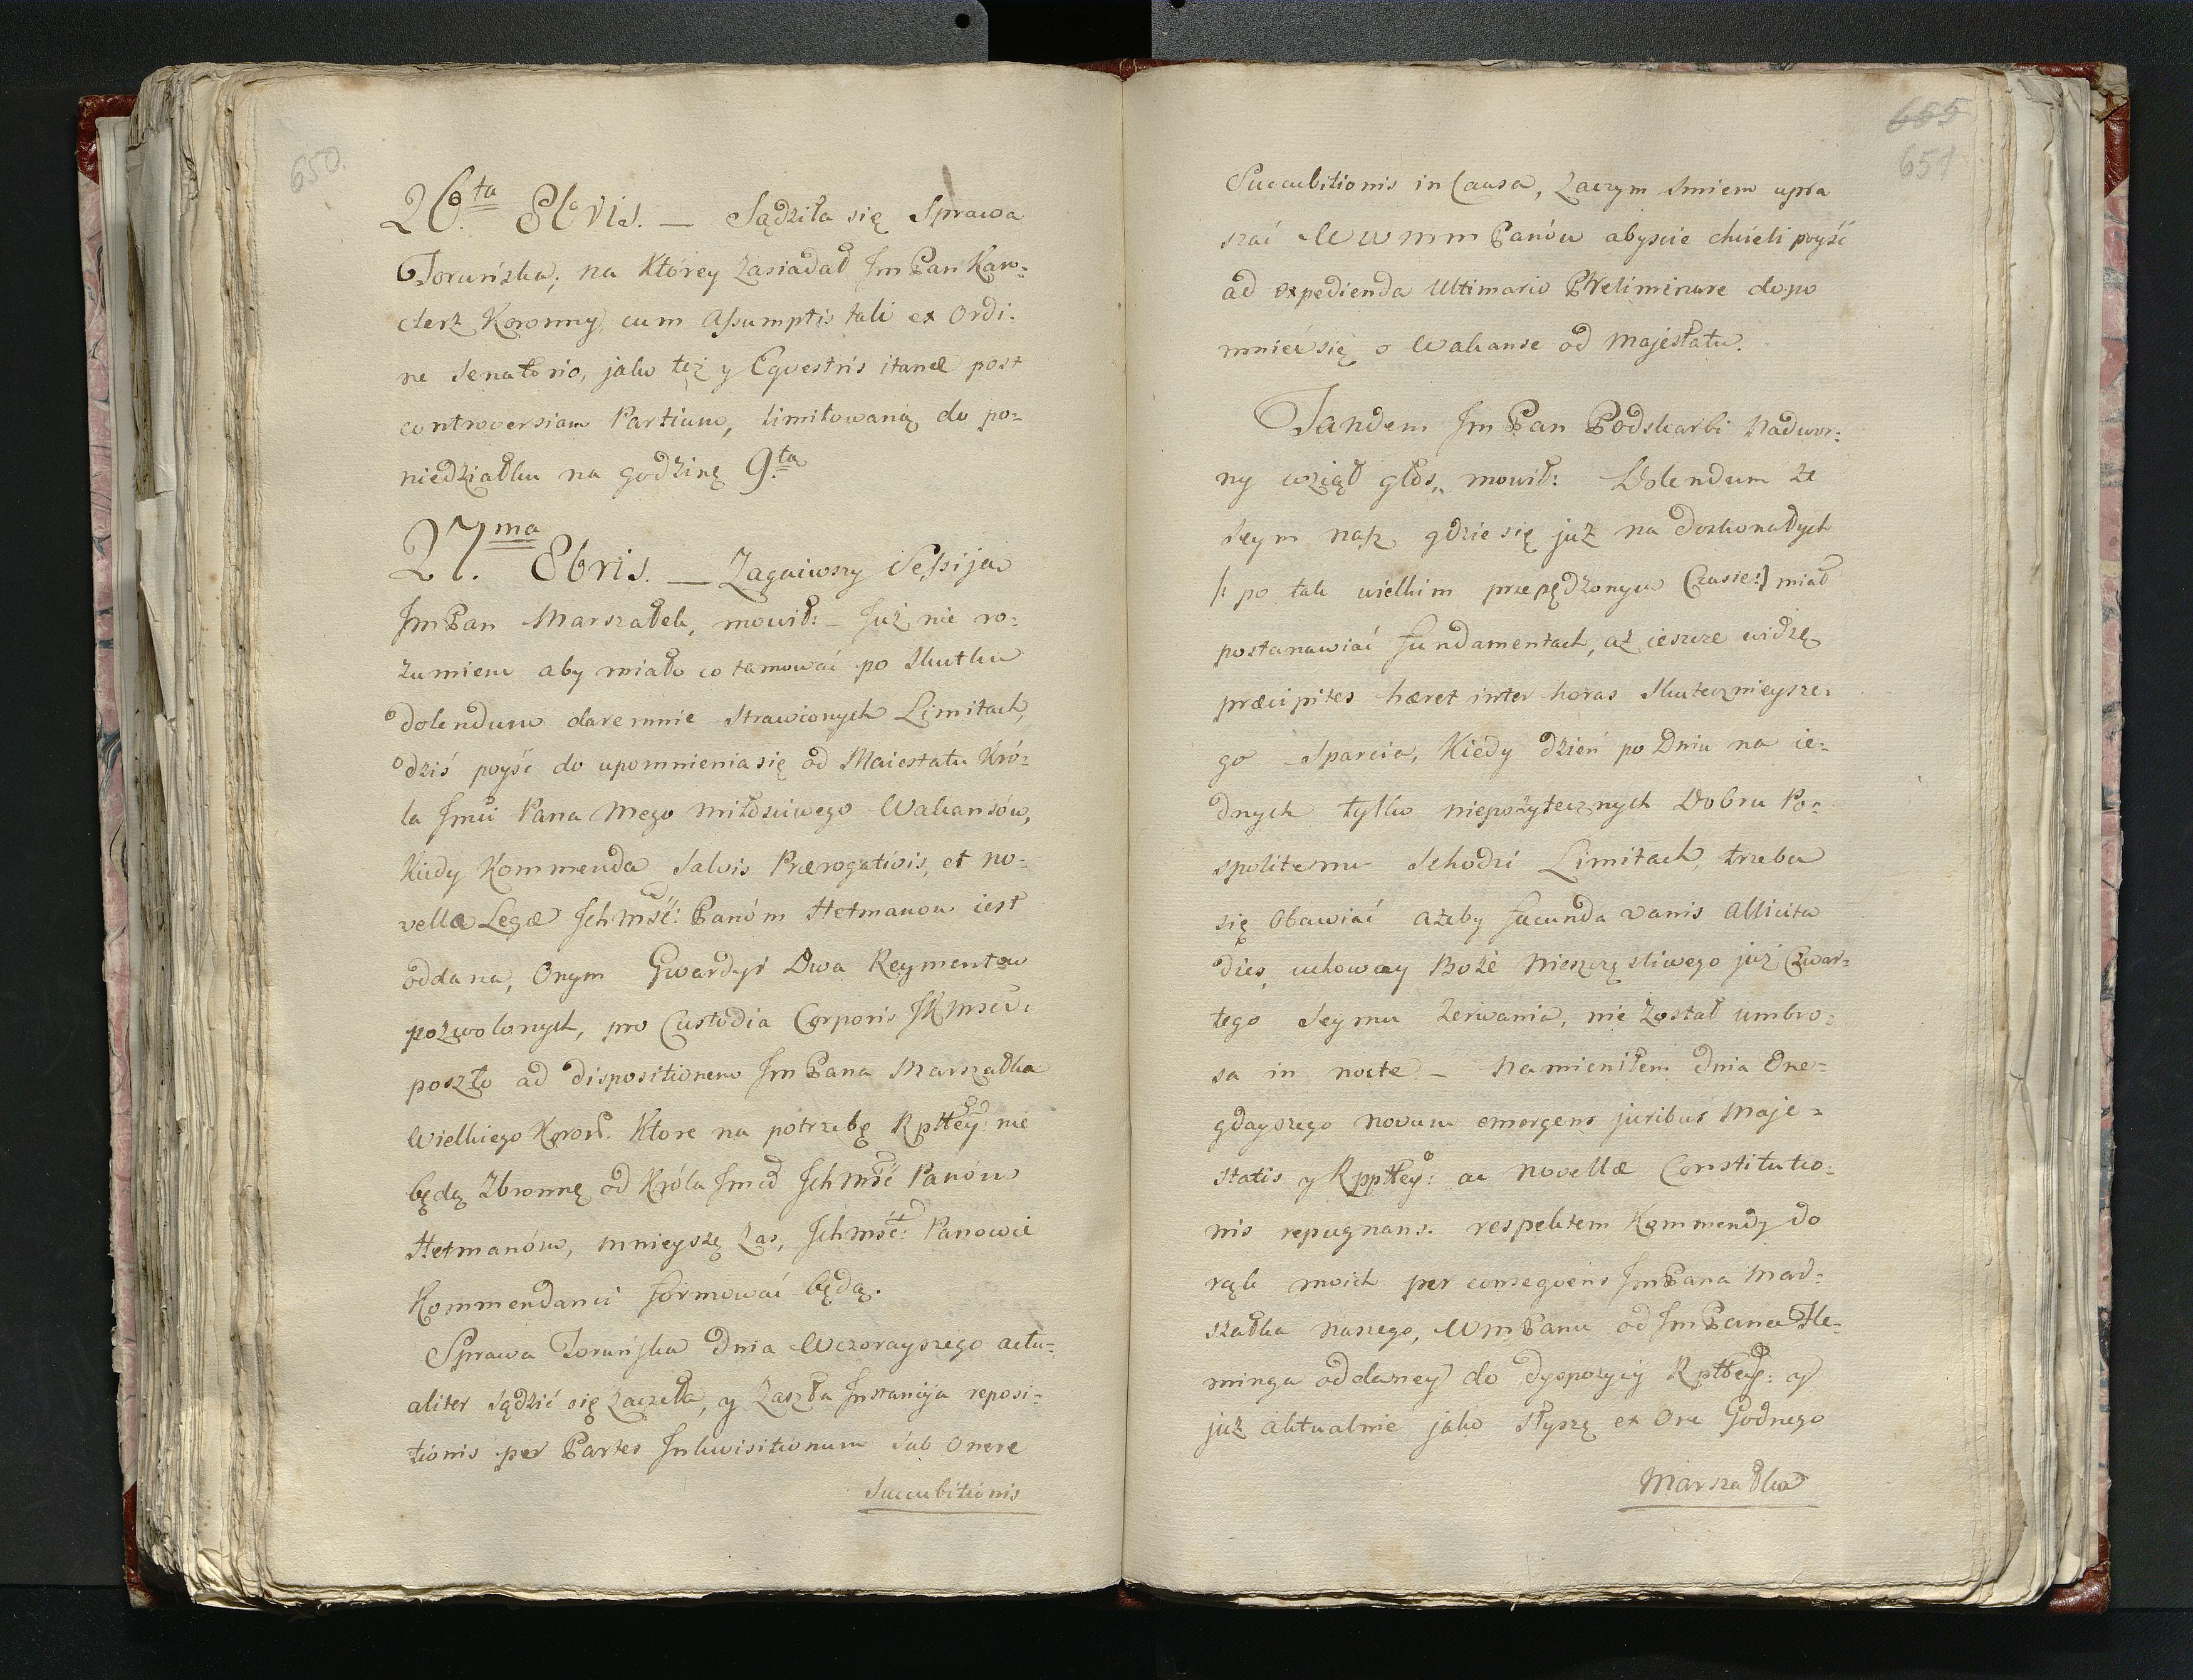 650.
26.ta 8bris. — Sądziła się Sprawa
Toruńska, na Którey zasiadał Im Pan Kan=
clerz Koronny, cum Assumptis tali ex Ordi:
ne Senatorio, jako też y Eqvestris itanæ post
controversiam Partium, limitowaną do po=
niedziałku na godzinę 9.ta
27.ma 8bris. — Zagaiwszy Sessija
Im Pan Marszałek, mowił: – Już nie ro:
zumiem aby miało co tamować po skutku
dolendum daremnie strawionych Limitach,
dziś poyść do upomnienia się od Maiestatu Kró=
la Jmći Pana Mego miłościwego Wakansów,
Kiedy Kommenda Salvis Prærogativis, et no=
vellæ Legæ Ichmść: Panóm Hetmanom iest
oddana, Onym Gwardyi Dwa Reymentow
pozwolonych, pro Custodia Corporis JKMści:
poszło ad dispositionem Im Pana Marszałka
Wielkiego Koron. Ktore na potrzebę Rpltey: nie
będą zbronnę od Króla Jmći Ichmść Panów
Hetmanów, mnieyszę zas, Ichmść: Panowie
Kommendanci formować będą.
Sprawa Toruńska Dnia Wczorayszego actu=
aliter sądzić się zaczeła, y zaszła Instancija reposi=
tionis per Partes Inkwisitionum sub onere
Succubitionis
655
651
Succubitionis in Causa, zaczym smiem upra
szać WWmm Panów abyscie chcieli poyść
ad expedienda Ultimario Preliminare dopo
mnieć się o Wakanse od Majestatu.
Tandem Im Pan Podskarbi Nadwor:
ny wziął głos, mowił: Dolendum że
Seym nasz gdzie się już na doskonałych
/: po tak wielkim przepędzonym Czasie:/ miał
postanawiać fundamentach, aż ieszcze widzę
præcipites hæret inter horas skutecznieysze:
go Sparcia, Kiedy dzień po Dniu na ie:
dnych tylko niepożytecznych Dobru Po=
spolitemu schodzi Limitach, trzeba
się Obawiać ażeby facunda vanis Allicita
dies, uchoway Boże nieszczęsliwego już Czwar=
tego Seymu zerwania, nie został umbro=
sa in nocte – Namieniłem Dnia One=
gdayszego novum emergens juribus Maje=
statis y Rppltey: ac novellæ Constitutio:
nis repugnans. respektem Kommendy do
rąk moich per conseqvens Im Pana Mar=
szałka naszego, Wm Panu od Im Pana Fle=
minga oddaney do dyspozycij Rpltey: y
już aktualnie jako słyszę ex Ore Godnego
Marszałka